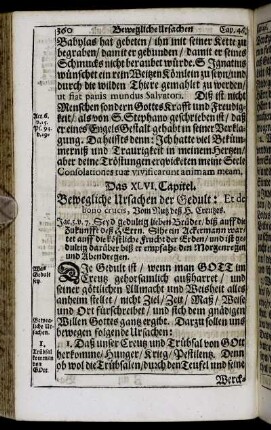 360 Bewegliche Ursachen Cap. 46.
Babylas hat gebeten / ihn mit seiner Kette zu
begraben / damit er gebunden / damit er seines
Schmucks nicht beraubt würde. S. Ignatius
wünschet ein rein Weitzen Körnlein zu seyn / und
durch die wilden Thiere gemahlt zu werden /
ut fiat panis mundus Salvatori. Diß ist nicht
Menschen sondern Gottes Krafft und Freudig-
keit / als von S. Stephano geschrieben ist / daß
er eines Engels Gestalt gehabt in seiner Verkla-
gung. Da heists denn: Ich hatte viel Beküm-
merniß und Traurigkeit in meinem Hertzen,
aber deine Tröstungen erquicketen meine Seele
Consolationes tuæ vivificarunt animam meam.
Act. 6.
v. 15.
Ps. 94.
v. 19.
Das XLVI. Capitel.
Bewegliche Ursachen der Gedult: Et de
bono crucis, Vom Nutz deß H. Creutzes.
Jac. 5. v. 7. Seyd gedultig lieben Brüder, biß auff die
Zukunfft deß HErrn. Sihe ein Ackermann war-
tet auff die köstliche Frucht der Erden / und ist ge-
dultig darüber biß er empfahe den Morgenregen
und Abendregen.
Was
Gedult
sey.
Die Gedult ist / wenn man GOTT im
Creutz gehorsamlich außharret / und
seiner göttlichen Allmacht und Weisheit alles
anheim stellet / nicht Ziel / Zeit / Maß / Weise
und Ort fürschreibet / und sich dem gnädigen
Willen Gottes gantz ergibt. Darzu sollen uns
bewegen folgende Ursachen:
Beweg-
liche Ur-
sachen.
1. Daß unser Creutz und Trübsal von GOtt
herkomme / Hunger / Krieg / Pestilentz. Denn
ob wol die Trübsalen / durch den Teufel und seine
1.
Trübsal
kommen
von
GOtt.
Werck-